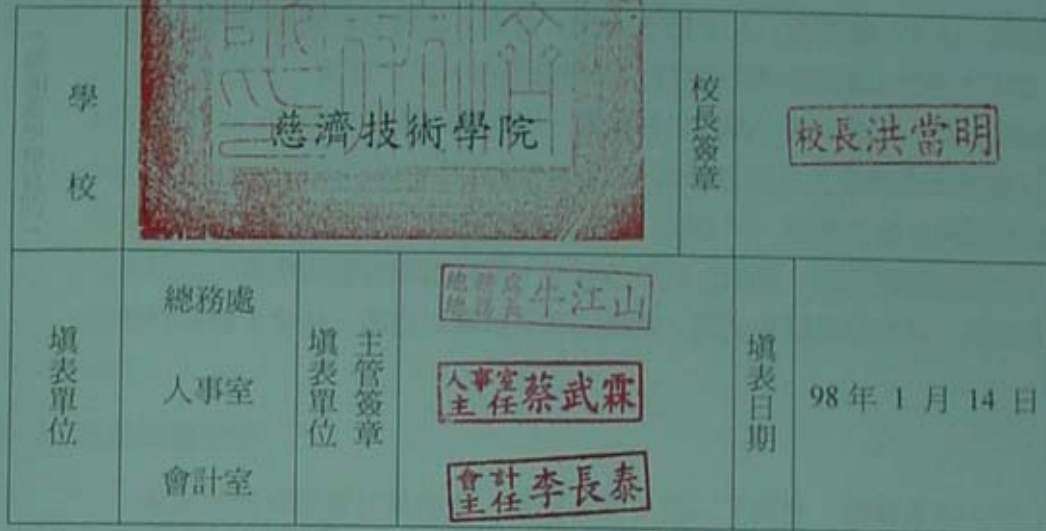 學校
慈濟技術學院
校長簽章
校長洪當明
填表單位
總務處
人事室
會計室
填表單位
主管簽章
總務處
總務長
牛江山
人事室
主任
蔡武霖
會計
主任
李長泰
填表日期
98年1月14日